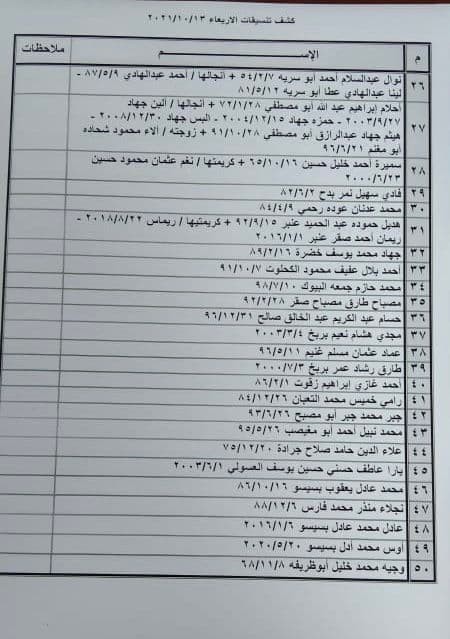 كشف تنسيقات الاربعاء ٢٠٢١/١٠/١٣
م الإســــــم ملاحظات
٢٦ نوال عبدالسلام أحمد أبو سريه ٥٤/٢/٧ + أنجالها / أحمد عبدالهادي ٨٧/٥/٩ -
لينا عبدالهادي عطا أبو سريه ٨١/٥/١٢
٢٧ أحلام إبراهيم عبد الله أبو مصطفي ٧٢/١/٢٨ + أنجالها / ألين جهاد
٢٠٠٣/٩/٢٧ - حمزه جهاد ٢٠٠٤/١٢/١٥ - اليس جهاد ٢٠٠٨/١٢/٣٠ -
هيثم جهاد عبدالرازق أبو مصطفي ٩١/١٠/٢٨ + زوجته / آلاء محمود شحاده
أبو مغنم ٩٦/٦/٢١
٢٨ سميرة أحمد خليل حسين ٦٥/١٠/١٦ + كريمتها / نغم عثمان محمود حسين
٢٠٠٠/٦/٢٣
٢٩ فادي سهيل نمر بدح ٨٢/٦/٢
٣٠ محمد عدنان عوده رحمي ٨٤/٤/٩
٣١ هديل حموده عبد الحميد عنبر ٩٢/٩/١٥ + كريمتيها / ريماس ٢٠١٨/٨/٢٢ -
ريمان أحمد صقر عنبر ٢٠١٦/١/١
٣٢ جهاد محمد يوسف خضرة ٨٩/٢/١٦
٣٣ أحمد بلال عفيف محمود الكحلوت ٩١/١٠/٧
٣٤ محمد حازم جمعه البيوك ٩٨/٧/١٠
٣٥ مصباح طارق مصباح صقر ٩٢/٢/٢٨
٣٦ حسام عبد الكريم عبد الخالق صالح ٩٦/١٢/٣١
٣٧ مجدي هشام نعيم بربخ ٢٠٠٣/٣/٤
٣٨ عماد عثمان مسلم غنيم ٩٦/٥/١١
٣٩ طارق رشاد عمر بربخ ٢٠٠٠/٧/٣
٤٠ أحمد غازي إبراهيم زقوت ٨٦/٢/١
٤١ رامي خميس محمد التعبان ٨٤/١٢/٢٦
٤٢ جبر محمد جبر أبو مصبح ٩٣/٦/٢٦
٤٣ محمد نبيل أحمد أبو مغيصب ٩٥/٥/٢٦
٤٤ علاء الدين حامد صلاح جرادة ٧٥/١٢/٢٠
٤٥ يارا عاطف حسني حسين يوسف العسولي ٢٠٠٣/٦/١
٤٦ محمد عادل يعقوب بسيسو ٨٦/١٠/١٦
٤٧ نجلاء منذر محمد فارس ٨٨/١٢/٦
٤٨ عادل محمد عادل بسيسو ٢٠١٦/١/٦
٤٩ أوس محمد أدل بسيسو ٢٠٢٠/٥/٢٠
٥٠ وجيه محمد خليل أبوظريفه ٦٨/١١/٨